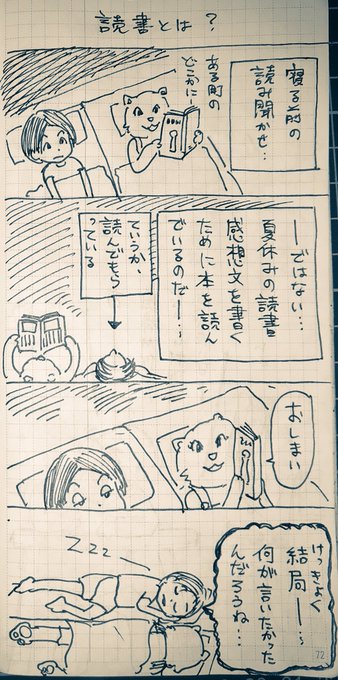 読書とは?
寝る前の
読み聞かせ…
ある町の
どこかに〜
ーではない…
夏休みの読書
感想文を書く
ために本を読ん
でいるのだー…
ていうか、
読んでもら
っている
おしまい
けっきょく
結局ー…
何が言いたかった
んだろうね…
ZZZ
72